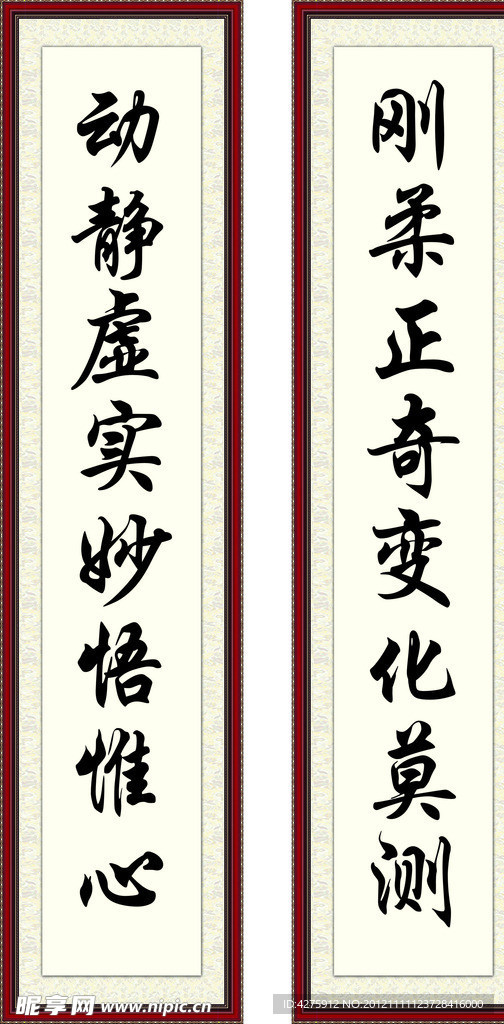 刚柔正奇变化莫测
动静虚实妙悟惟心
昵享网 www.nipic.cn
ID:4275912 NO:20121111123728416000